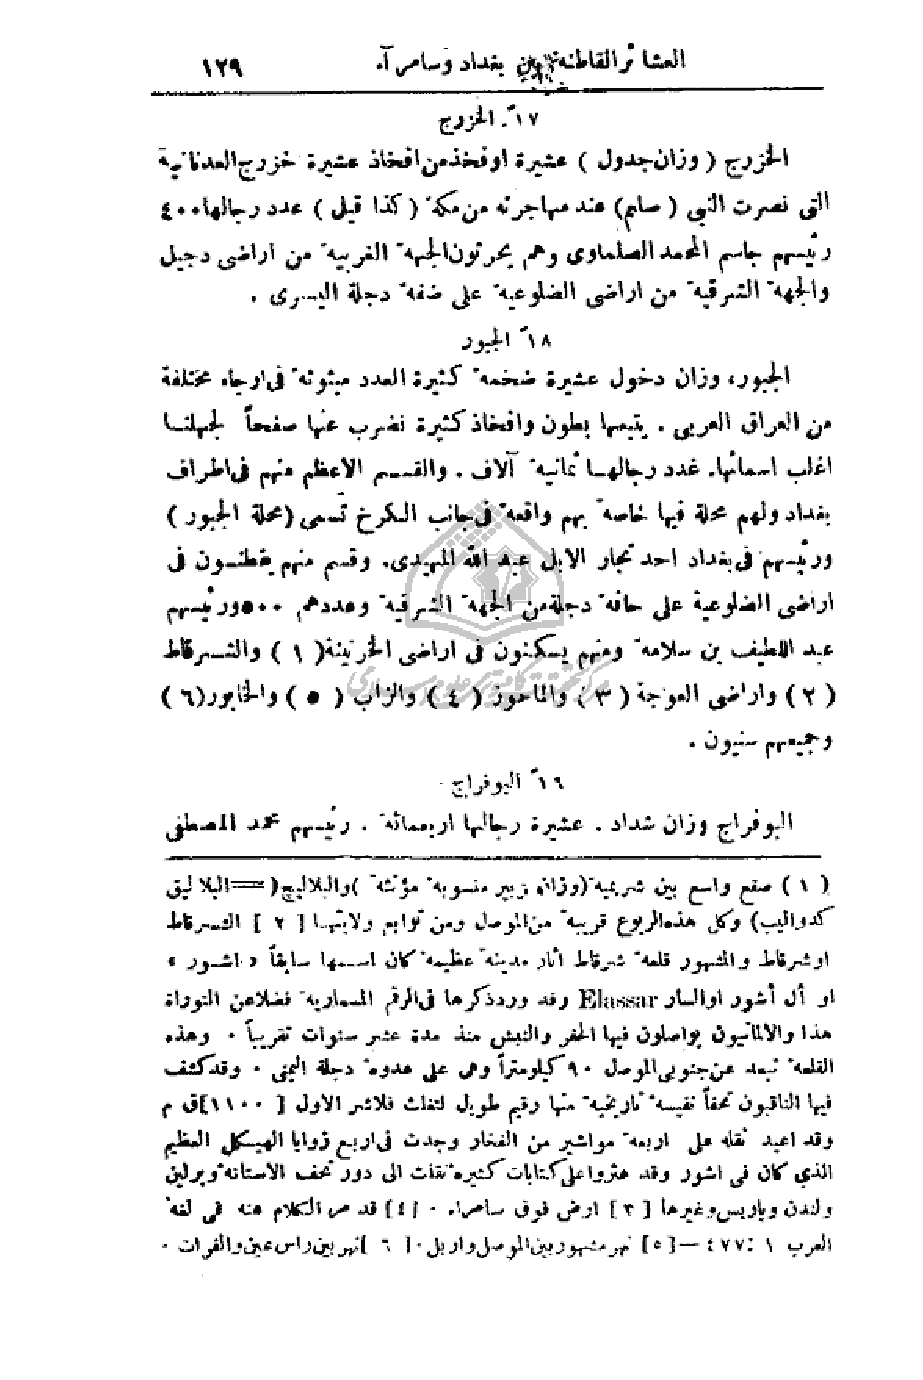 العشائر القاطنة بين بغداد وسامرآء ١٢٩
١٧ً. الخزرج
الخزرج ( وزان جدول ) عشيرة او فخذ من افخاذ عشيرة خزرج العدنانية
التى نصرت النبي ( صلعم ) عند مهاجرته من مكة ( كذا قيل ) عدد رجالها ٤٠٠
رئيسهم جاسم المحمد الصلماوى وهم يحرثون الجهة الغربية من اراضى دجيل
والجهة الشرقية من اراضى الضلوعية على ضفة دجلة اليسرى .
١٨ً الجبور
الجبور، وزان دخول عشيرة ضخمة كثيرة العدد مبثوثة فى ارجاء مختلفة
من العراق العربى . يتبعها بطون وافخاذ كثيرة نضرب عنها صفحاً لجهلنا
اغلب اسمائها. عدد رجالها ثمانية آلاف . والقسم الاعظم منهم فى اطراف
بغداد ولهم محلة فيها خاصة بهم واقعة فى جانب الكرخ تسمى (محلة الجبور )
ورئيسهم فى بغداد احد تجار الابل عبد الله المهيدى. وقسم منهم يقطنون فى
اراضى الضلوعية على حافة دجلة من الجهة الشرقية وعددهم ٥٠٠ ورئيسهم
عبد اللطيف بن سلامة ومنهم يسكنون فى اراضى الخرنينة ( ١ ) والشرقاط
( ٢ ) واراضى العوجة ( ٣ ) والماحوز ( ٤ ) والزاب ( ٥ ) والخابور (٦ )
وجميعهم سنيون .
١٩ً البوفراج
البوفراج وزان شداد . عشيرة رجالها اربعمائة . رئيسهم محمد المصطفى
( ١ ) صقع واسع بين شريمية (وزان زبير منسوبة مؤنثة )والبلاليج( = البلاليق
كدواليب) وكل هذه الربوع قريبة من الموصل ومن توابع ولايتها [ ٢ ] الشرقاط
او شرقاط والمشهور قلعة شرقاط آثار مدينة عظيمة كان اسمها سابقاً « اشور »
او أل أشور او السار Elassar وقد ورد ذكرها فى الرقم المسمارية فضلا عن التوراة
هذا والالمانيون يواصلون فيها الحفر والنبش منذ مدة عشر سنوات تقريباً ٠ وهذه
القلعة تبعد عن جنوبى الموصل ٩٠ كيلومتراً وهى على عدوة دجلة اليمنى ٠ وقد كشف
فيها الناقبون تحفاً نفيسة تاريخية منها رقيم طويل لتغلث فلاشر الاول [ ١١٠٠]ق م
وقد اعيد نقله على اربعة مواشير من الفخار وجدت فى اربع زوايا الهيكل العظيم
الذي كان فى اشور وقد عثروا على كتابات كثيرة نقلت الى دور تحف الاستانة وبرلين
ولندن وباريس وغيرها [ ٣ ] ارض فوق سامراء ٠ [٤] قد مر الكلام عنه فى لغة
العرب ١ : ٤٧٧ — [٥] نهر مشهور بين الموصل واربل ٠ [ ٦ ]نهر بين راس عين والفرات ٠